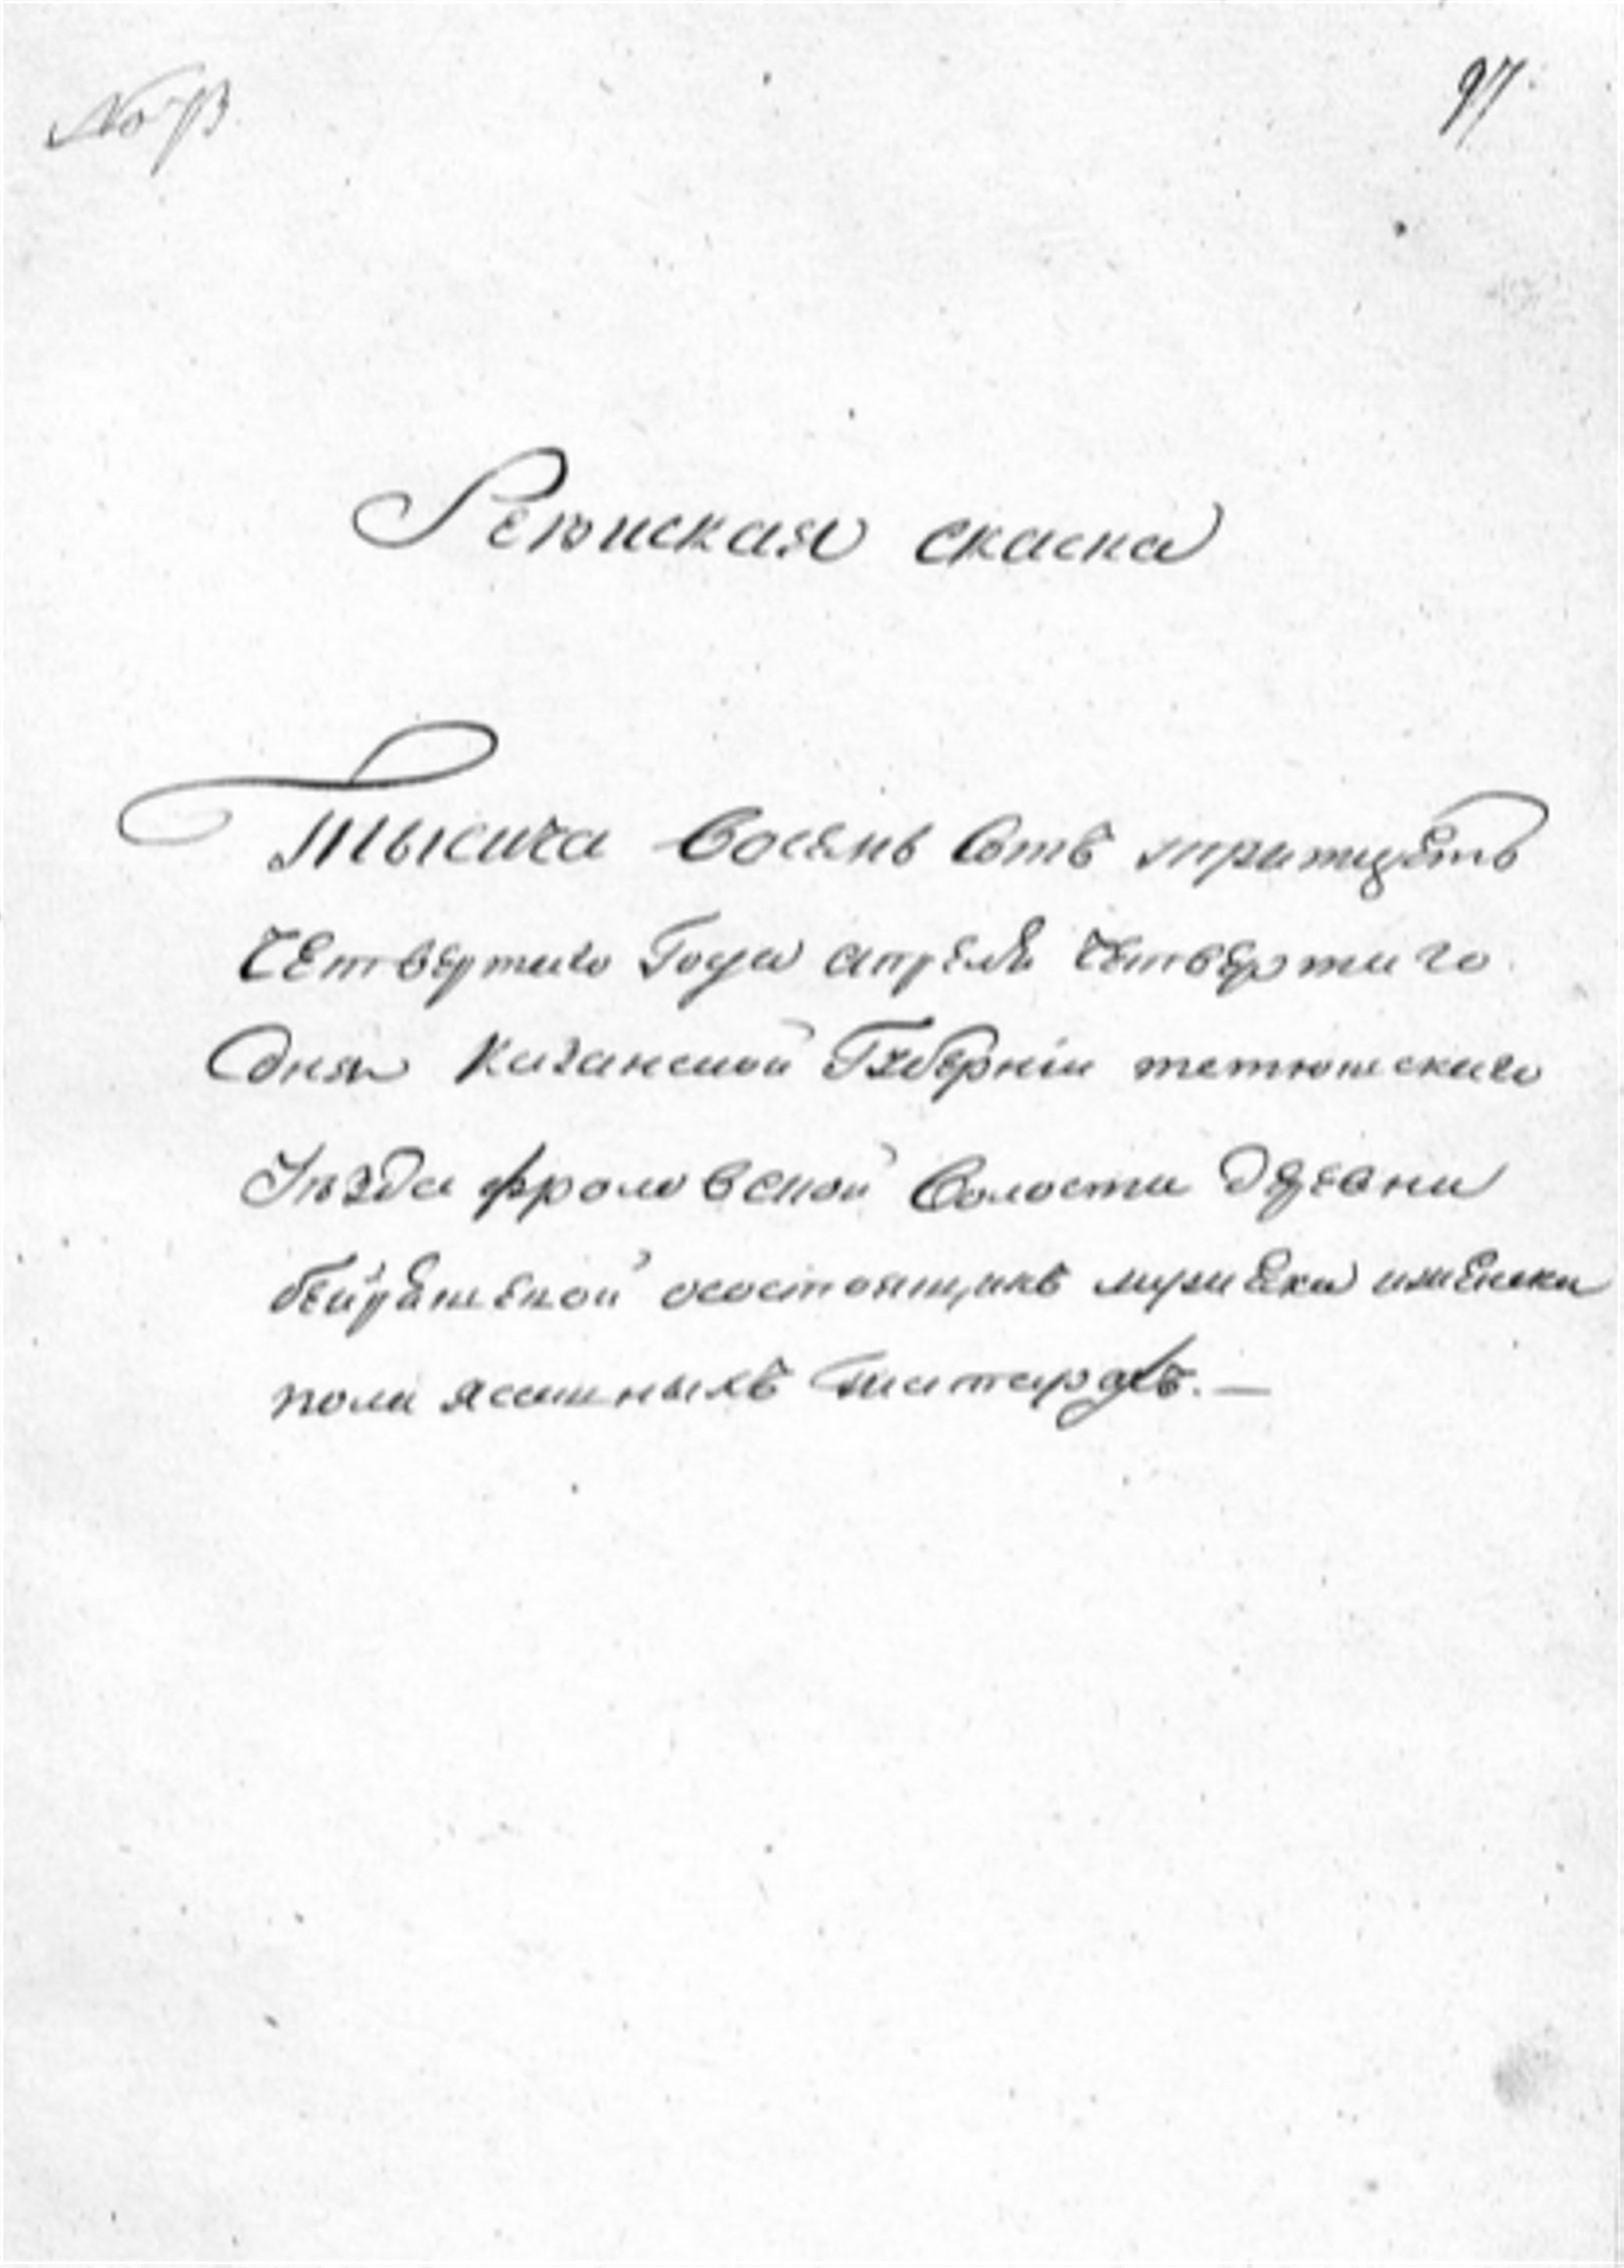 97
Ревиская скаска
Тысяча восемь сотъ тритцеть
четвертаго Года апреля четвертаго
дня Казанской Губерніи тетюшскаго
Уезда фроловской волости деревни
бейрашевой осостоящихъ мужеска иженска
пола ясашныхъ татарахъ. —